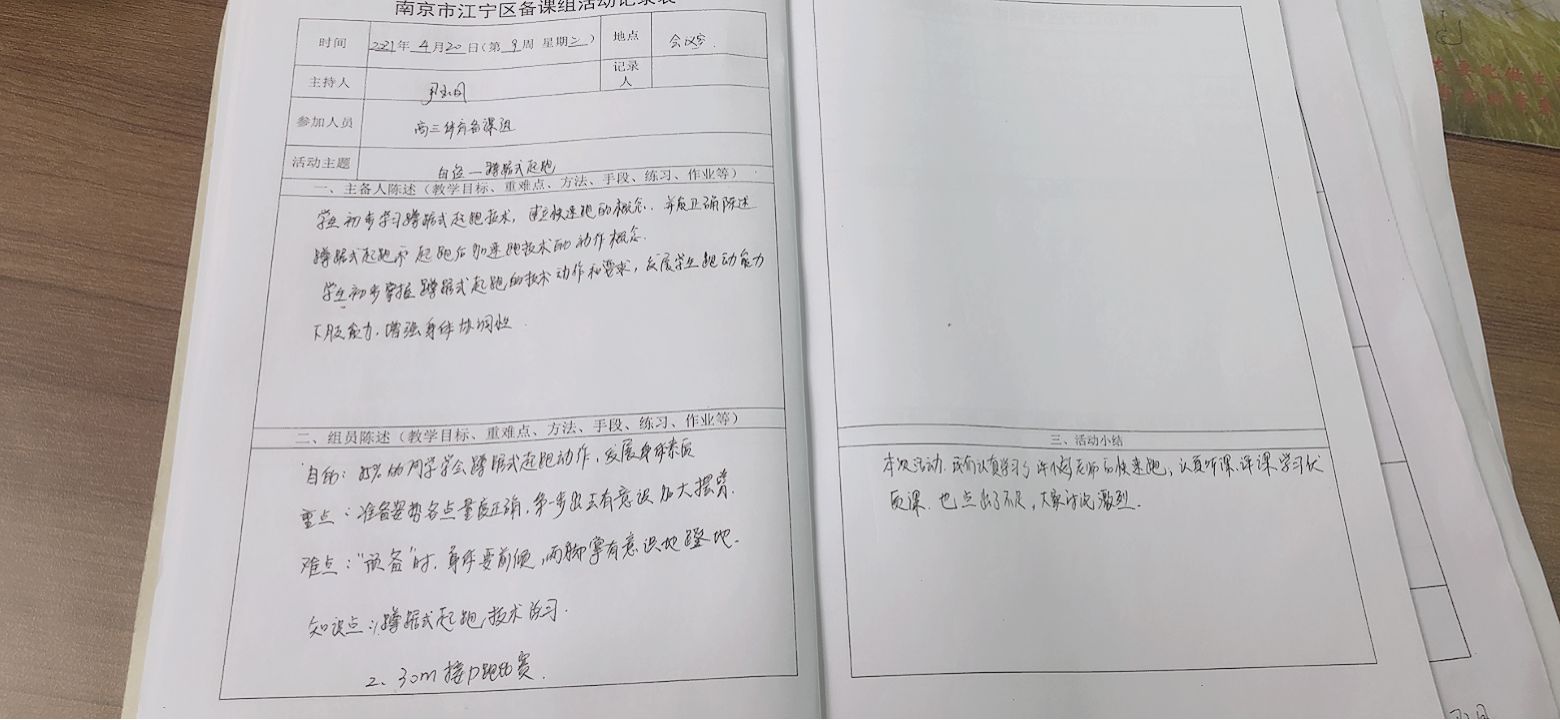 南京市江宁区备课组活动记录表
时间 2021年4月20日(第9周 星期二) 地点 会议室.
主持人 记录人
参加人员 高三体育备课组
活动主题 自选—蹲踞式起跑
一、主备人陈述（教学目标、重难点、方法、手段、练习、作业等）
学生初步学习蹲踞式起跑技术，建立快速跑的概念.并能正确陈述
蹲踞式起跑和起跑后加速跑技术的动作概念.
学生初步掌握蹲踞式起跑的技术动作和要求，发展学生跑动能力
下肢能力.增强身体协调性.
二、组员陈述（教学目标、重难点、方法、手段、练习、作业等）
目的：85%的同学学会蹲踞式起跑动作，发展身体素质
重点：准备姿势各点量度正确，第一步出去有意识加大摆臂.
难点："预备"时，身体要前倾，两脚掌有意识地蹬地.
知识点：1.蹲踞式起跑技术练习.
2、30m接力跑比赛.
三、活动小结
本次活动.我们认真学习了许老师的快速跑，认真听课.评课.学习优
质课.也点出了不足，大家讨论激烈.